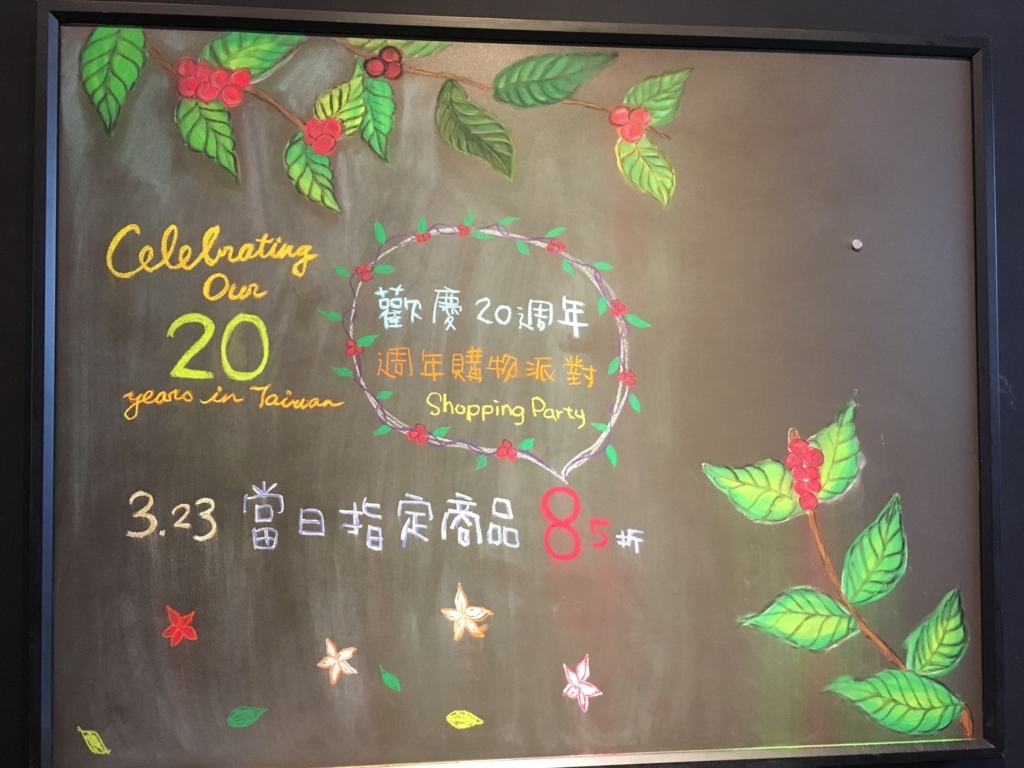 Celebrating
Our
20
years in Taiwan
歡慶20週年
週年購物派對
Shopping Party
3.23 當日指定商品 85折